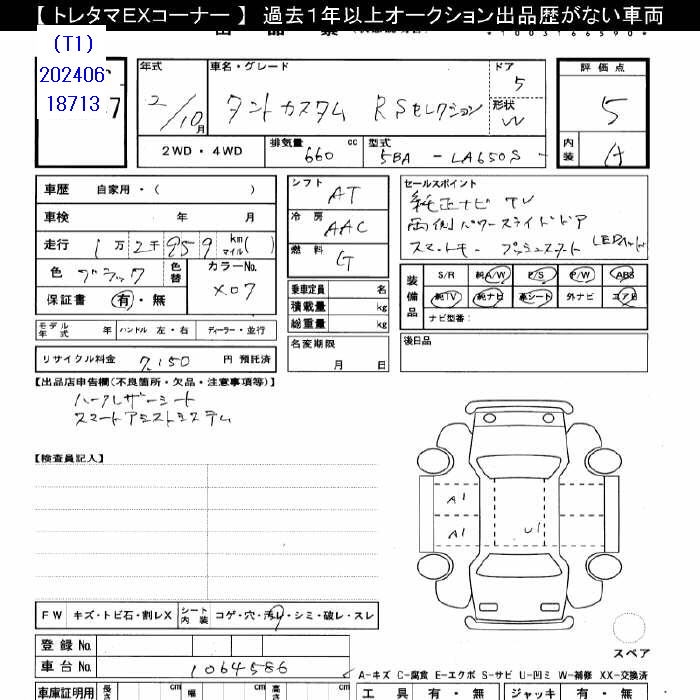 【 トレタマEXコーナー 】 過去1年以上オークション出品歴がない車両
(T1)
202406
18713
7
年式
車名・グレード
ドア
評価点
2/10月
タントカスタム RSセレクション
5
形状
W
5
2WD・4WD
排気量
660 cc
型式
5BA - LA650S -
内装
A
車歴 自家用・( )
車検 年 月
走行 1万2千959 km マイル( )
色 ブラック
色替
カラーNo.
X07
保証書 有・無
シフト AT
冷房 AAC
燃料 G
乗車定員 名
積載量 kg
総重量 kg
セールスポイント
純正ナビ TV
両側パワースライドドア
スマートキー プッシュスタート LEDヘッド
装備品
S/R 純A/W P/S P/W ABS
純TV 純ナビ 革シート 外ナビ エアB
ナビ型番:
モデル年式 年 ハンドル 左・右 ディーラー・並行
名変期限
月 日
後日品
リサイクル料金 7,150 円 預託済
【出品店申告欄(不良箇所・欠品・注意事項等)】
ハーフレザーシート
スマートアシストシステム
【検査員記入】
A1
A1
U1
FW キズ・トビ石・割レX シート内装 コゲ・穴・汚レ・シミ・破レ・スレ
登録 No.
車台 No. 1064586
スペア
A-キズ C-腐食 E-エクボ S-サビ U-凹ミ W-補修 XX-交換済
車庫証明用 長さ cm 幅 cm 高さ cm
工具 有・無 ジャッキ 有・無